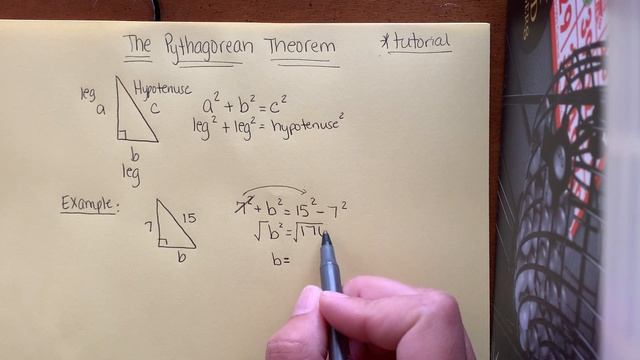 The Pythagorean Theorem *tutorial
leg
a
Hypotenuse
c
b
leg
a² + b² = c²
leg² + leg² = hypotenuse²
Example:
7
15
b
7² + b² = 15² - 7²
√b² = √176
b=